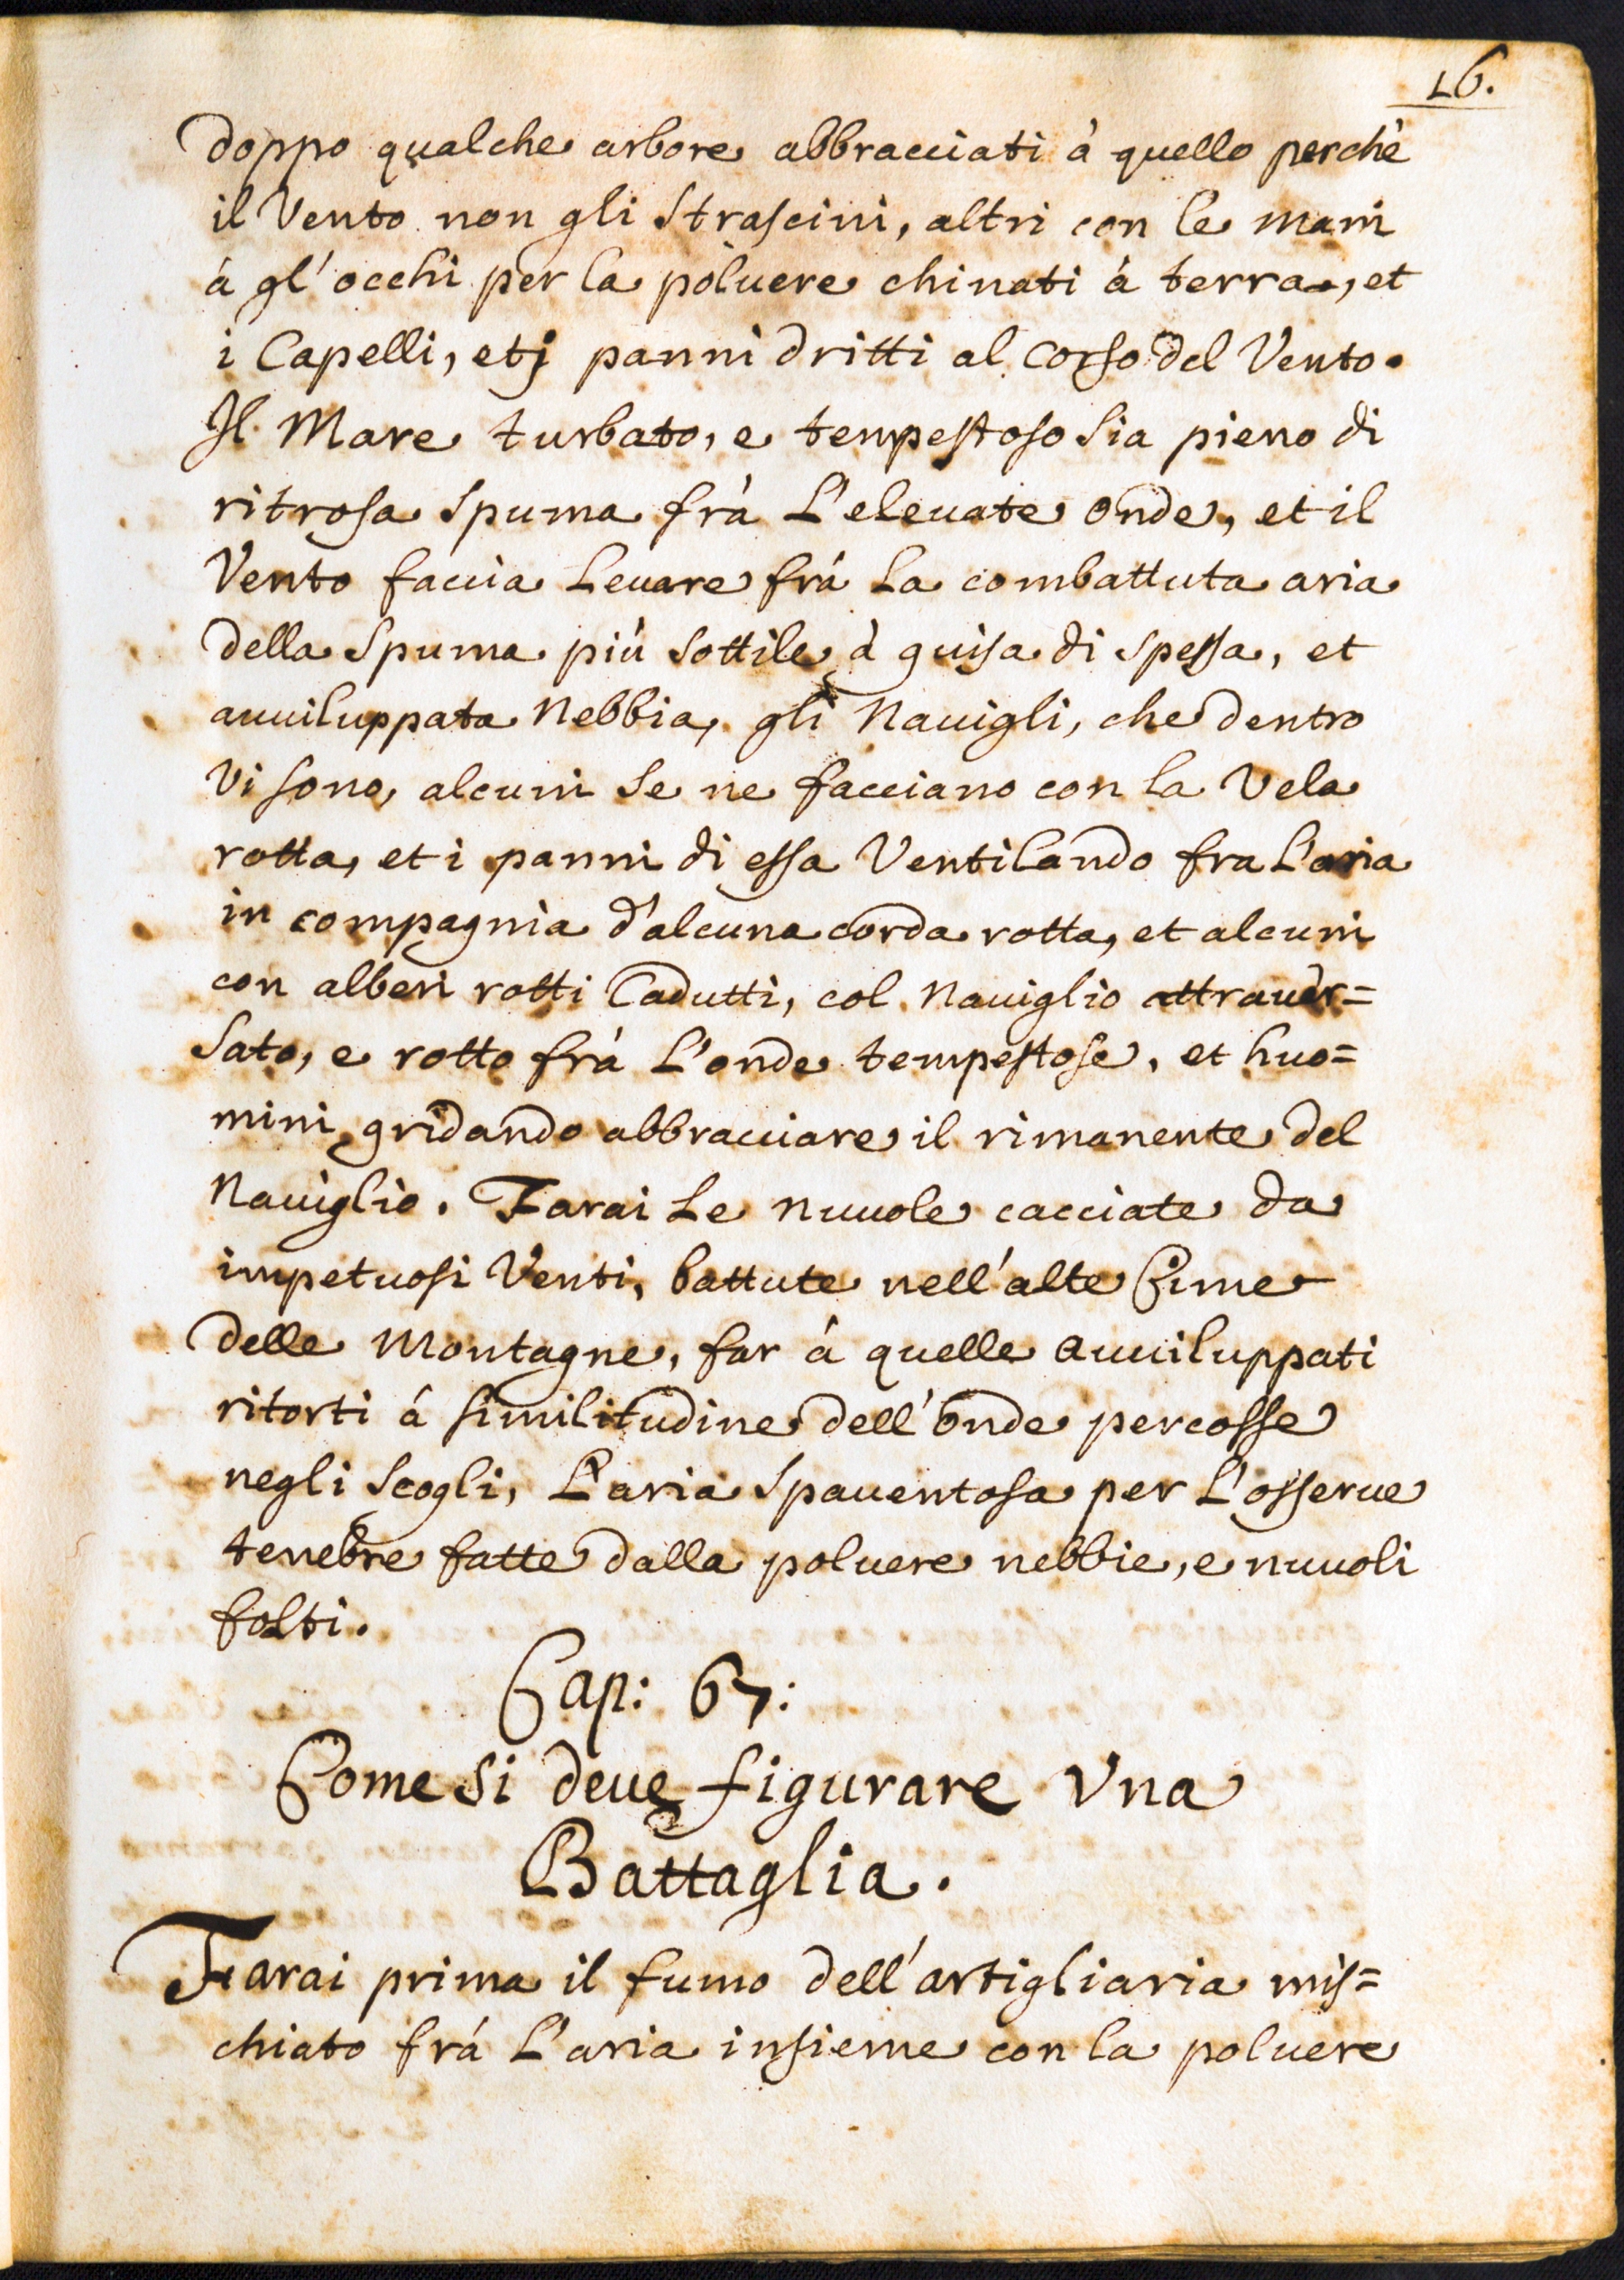 16.
doppo qualche arbore abbracciati à quello perchè
il Vento non gli strascini, altri con le mani
à gl'occhi per la poluere chinati à terra, et
i Capelli, et j panni dritti al corso del Vento.
Il Mare turbato, e tempestoso sia pieno di
ritrosa spuma frà L'eleuate onde, et il
Vento faccia Leuare frà La combattuta aria
della spuma più sottile à guisa di spessa, et
auuiluppata Nebbia, gli Nauigli, che dentro
Vi sono, alcuni se ne facciano con la Vela
rotta, et i panni di essa Ventilando fra L'aria
in compagnia d'alcuna corda rotta, et alcuni
con alberi rotti Cadutti, col Nauiglio attrauer=
sato, e rotto frà L'onde tempestose, et huo=
mini gridando abbracciare il rimanente del
Nauiglio. Farai Le nuuole cacciate da
impetuosi Venti, battute nell'alte Cime
delle Montagne, far à quelle auuiluppati
ritorti á similitudine dell'onde percosse
negli scogli, L'aria spauentosa per L'osserue
tenebre fatte dalla poluere nebbie, e nuuoli
folti.
Cap: 67:
Come si deue figurare Vna
Battaglia.
Farai prima il fumo dell'artigliaria mis=
chiato frá L'aria insieme con la poluere